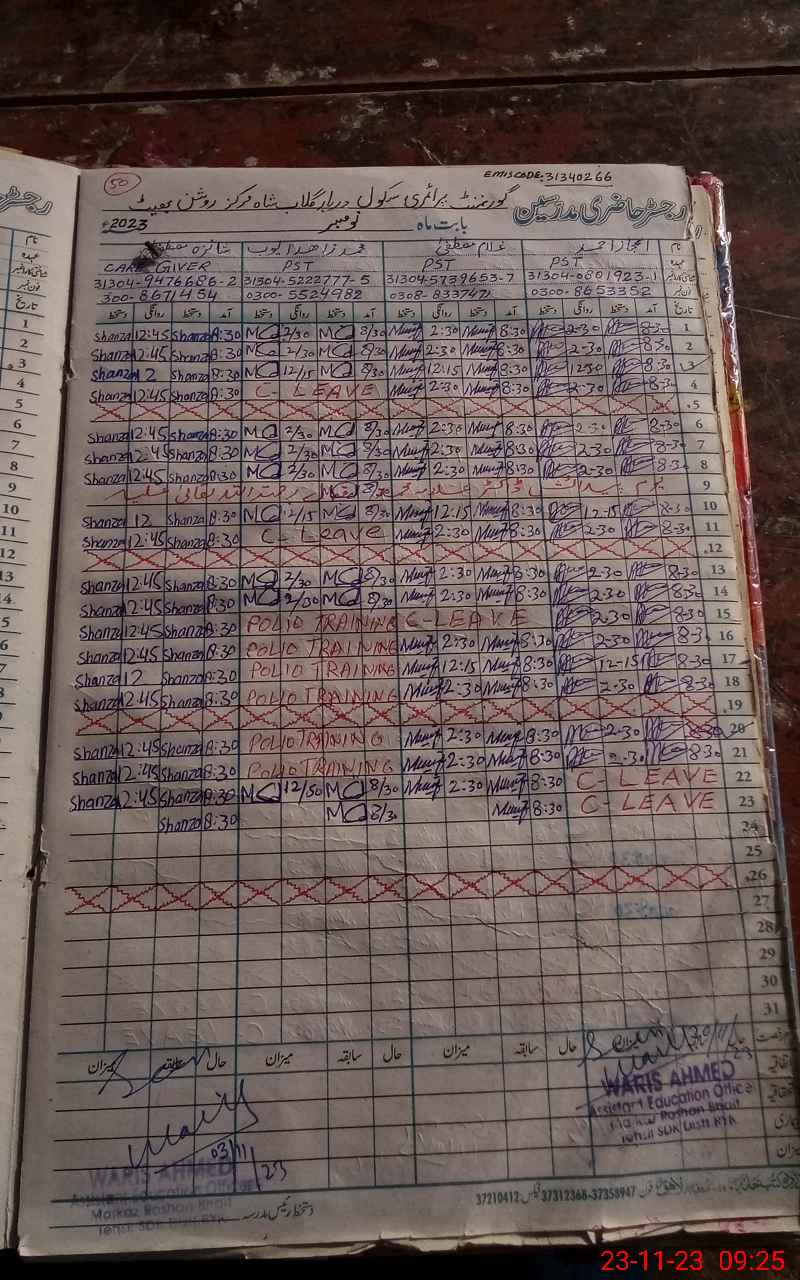 EMISCODE:31340266
50
رجسٹر حاضری مدرسین
گورنمنٹ پرائمری سکول دربار گلاب شاہ مرکز روشن بھیٹ
بابت ماہ نومبر 2023ء
نام اعجاز احمد غلام مصطفیٰ محمد زاھد ایوب شانزہ مصطفیٰ
عہدہ PST PST PST CARE GIVER
31304-9476686-2 31304-5222777-5 31304-5739653-7 31304-0601923-1
300-8671454 0300-5524982 0308-8337471 0300-8653352
تاریخ آمد دستخط روانگی دستخط آمد دستخط روانگی دستخط آمد دستخط روانگی دستخط آمد دستخط روانگی دستخط
Shanza 12:45 Shanza 8:30 MQ 2/30 MQ 8/30 2:30 8:30 2-30 8-30 1
Shanza 12:45 Shanza 8:30 MQ 2/30 MQ 8/30 2:30 8:30 2-30 8-30 2
Shanza 12 Shanza 8:30 MQ 12/15 MQ 8/30 12:15 8:30 8-30 3
Shanza 12:45 Shanza 8:30 C- LEAVE 2:30 8:30 2-30 8-30 4
5
Shanza 12:45 Shanza 8:30 MQ 2/30 MQ 8/30 2:30 8:30 2-30 8-30 6
Shanza 12:45 Shanza 8:30 MQ 2/30 MQ 8/30 2:30 8:30 2-30 8-30 7
Shanza 12:45 Shanza 8:30 MQ 2/30 MQ 8/30 2:30 8:30 2-30 8-30 8
یوم پیدائش ڈاکٹر علامہ محمد اقبال رحمتہ اللہ تعالیٰ علیہ 9
Shanza 12 Shanza 8:30 MQ 12/15 MQ 8/30 12:15 8:30 12-15 8-30 10
Shanza 12:45 Shanza 8:30 C- Leave 2:30 8:30 2-30 8-30 11
12
Shanza 12:45 Shanza 8:30 MQ 2/30 MQ 8/30 2:30 8:30 2-30 8-30 13
Shanza 12:45 Shanza 8:30 MQ 2/30 MQ 8/30 2:30 8:30 2-30 8-30 14
Shanza 12:45 Shanza 8:30 POLIO TRAINING C-LEAVE 2-30 8-30 15
Shanza 12:45 Shanza 8:30 POLIO TRAINING 2:30 8:30 2-30 8-30 16
Shanza 12 Shanza 8:30 POLIO TRAINING 12:15 8:30 12-15 8-30 17
Shanza 12:45 Shanza 8:30 POLIO TRAINING 2:30 8:30 2-30 8-30 18
19
Shanza 12:45 Shanza 8:30 POLIO TRAINING 2:30 8:30 2-30 8-30 20
Shanza 12:45 Shanza 8:30 POLIO TRAINING 2:30 8:30 2-30 8-30 21
Shanza 12:45 Shanza 8:30 MQ 12/50 MQ 8/30 2:30 8:30 C- LEAVE 22
Shanza 8:30 MQ 8/30 8:30 C- LEAVE 23
24
25
26
27
28
29
30
31
حال سابقہ میزان حال سابقہ میزان حال سابقہ میزان
WARIS AHMED
Assistant Education Officer
Markaz Roshan Bhait
Tehsil SDK Distt RYK
03/11/23
WARIS AHMED
Assistant Education Officer
Markaz Roshan Bhait
Tehsil SDK Distt RYK
دستخط رئیس مدرسہ
37312368-37358947 فیکس: 37210412
23-11-23 09:25